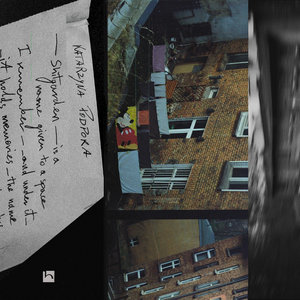 KATARZYNA PODPORA
— is a
name given to a space
I remember — and under it —
it holds memories — the name